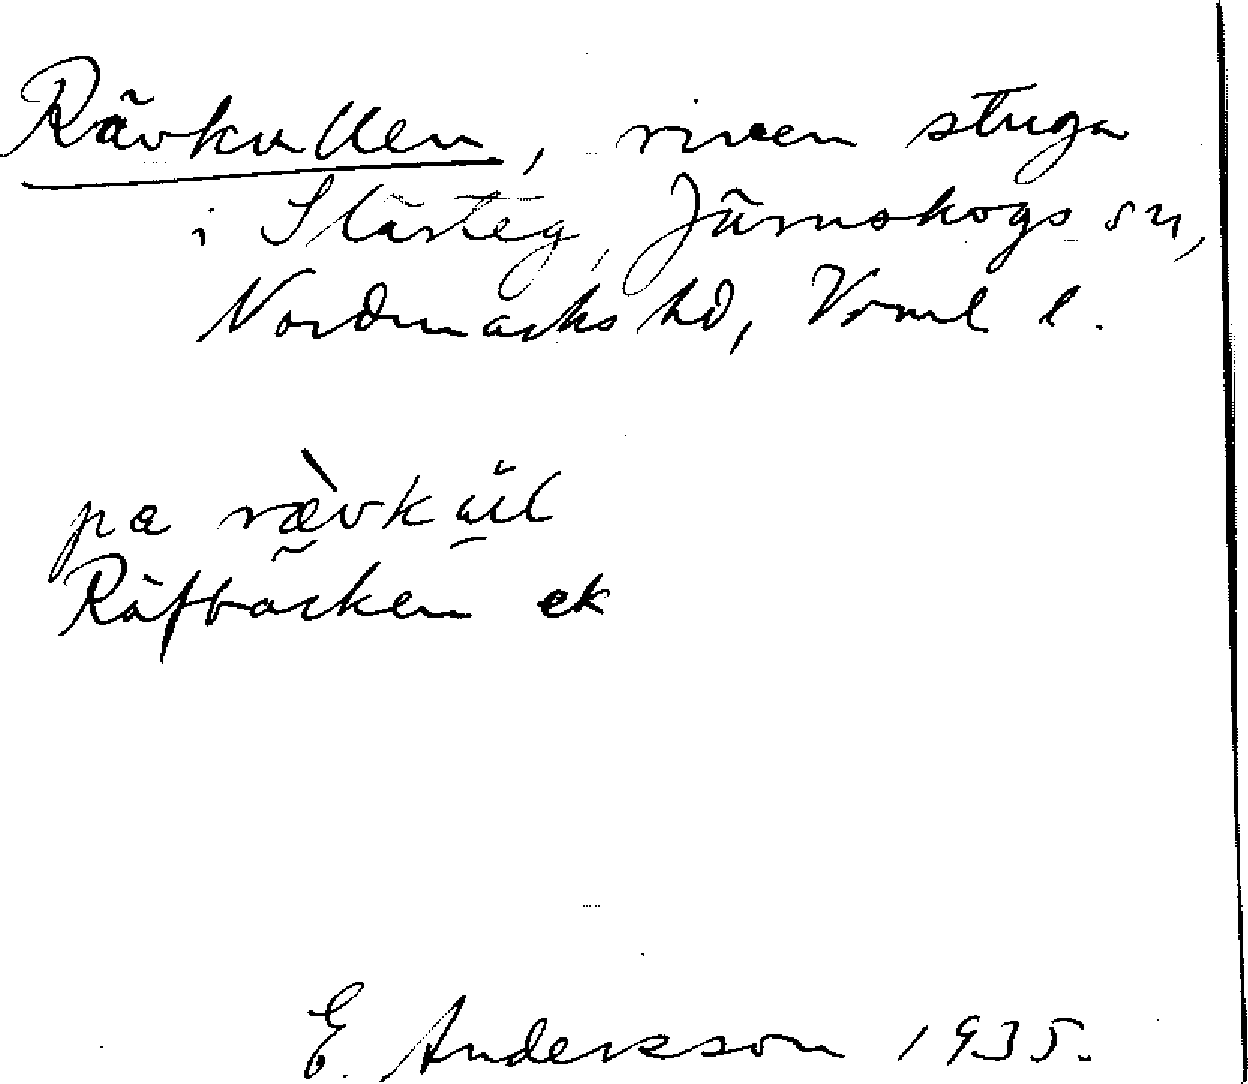 Rävkullen, riven stuga
i Slärteg, Järnskogs sn,
Nordmarks hd, Vrml l.
pa rævkull
Räfbacken ek
E. Andersson 1935.